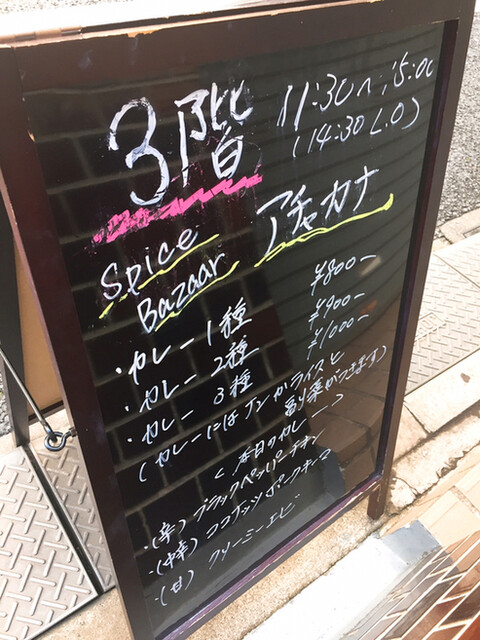 3階
11:30~15:00
(14:30 L.O)
Spice
Bazaar
アチャカナ
・カレー1種 ¥800-
・カレー2種 ¥900-
・カレー3種 ¥1000-
(カレーにはナンかライスと
副菜がつきます)
<本日のカレー>
・(辛)ブラックペッパーチキン
・(中辛)ココナッツポークキーマ
・(甘)クリーミーエビ